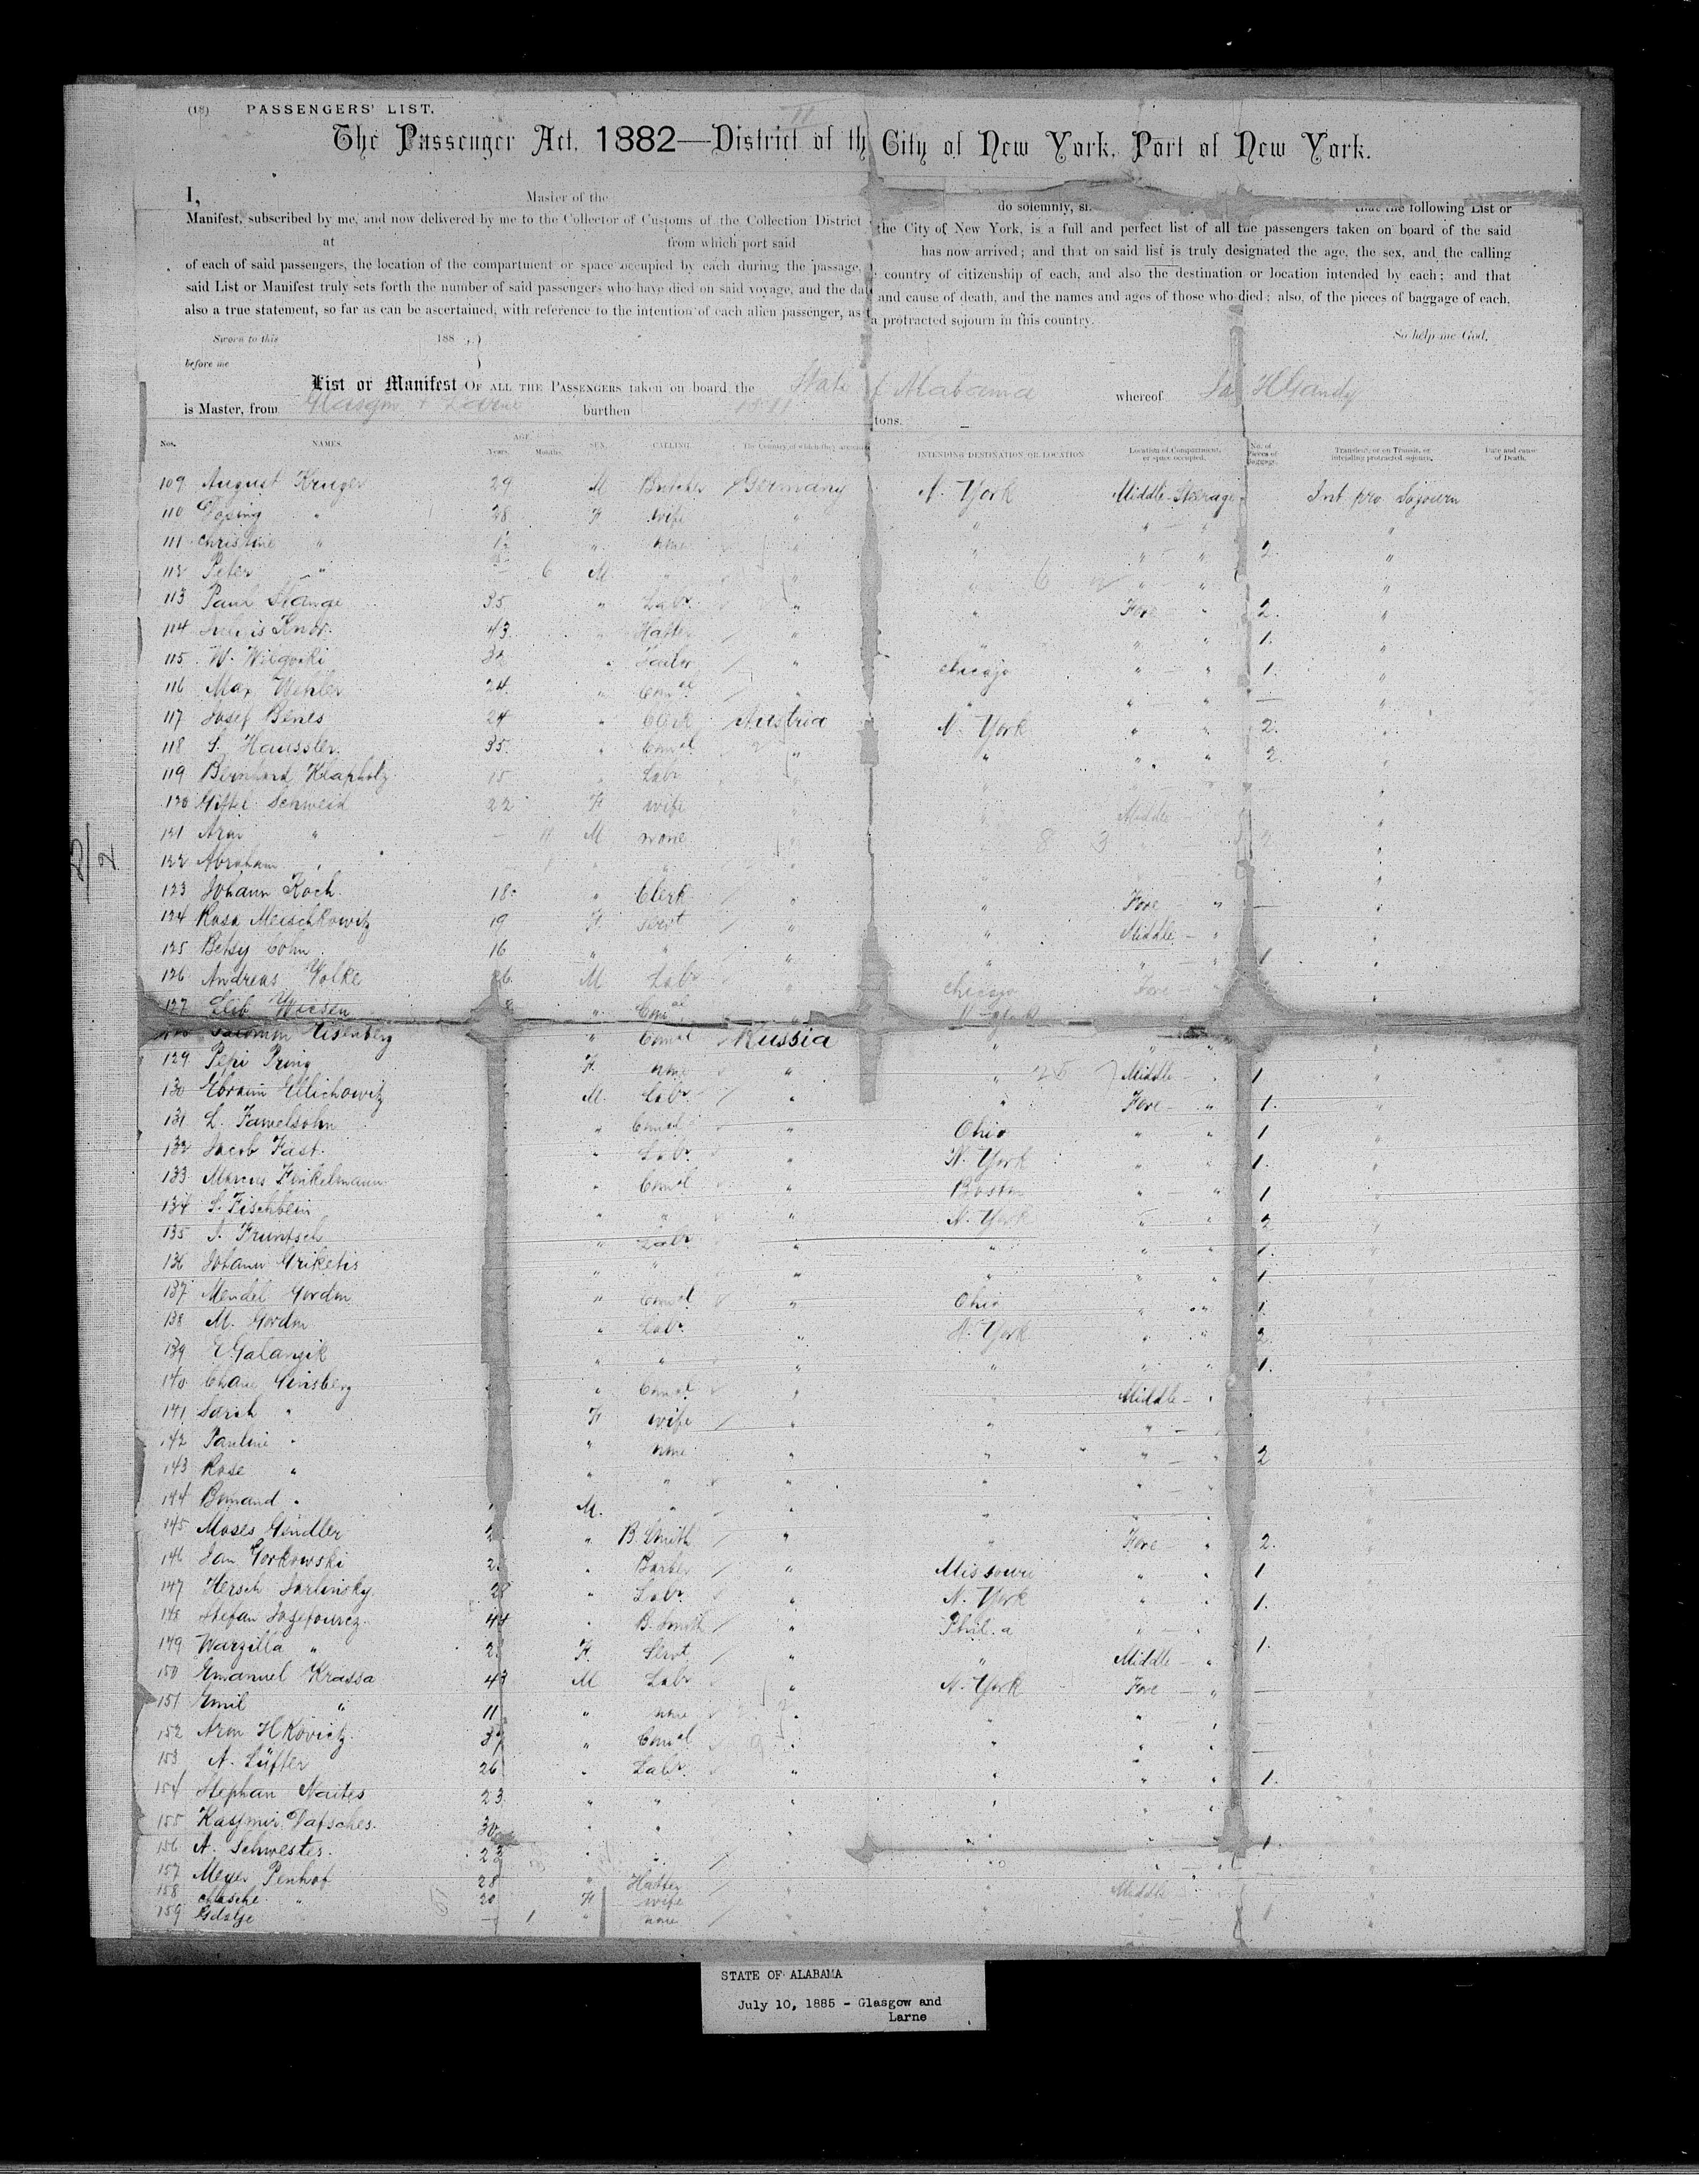 (18) PASSENGERS' LIST.
The Passenger Act, 1882—District of th City of New York, Port of New York.
I, Master of the do solemnly, that the following List or
Manifest, subscribed by me, and now delivered by me to the Collector of Customs of the Collection District the City of New York, is a full and perfect list of all the passengers taken on board of the said
at from which port said has now arrived; and that on said list is truly designated the age, the sex, and the calling
of each of said passengers, the location of the compartment or space occupied by each during the passage, country of citizenship of each, and also the destination or location intended by each; and that
said List or Manifest truly sets forth the number of said passengers who have died on said voyage, and the dat and cause of death, and the names and ages of those who died; also, of the pieces of baggage of each,
also a true statement, so far as can be ascertained, with reference to the intention of each alien passenger, as t a protracted sojourn in this country.
Sworn to this 188 So help me God.
before me
List or Manifest OF ALL THE PASSENGERS taken on board the State of Alabama whereof Gandy
is Master, from Glasgow & Larne burthen tons.
Nos. NAMES. AGE. Years. Months. SEX. CALLING. The Country of which they are citizens INTENDING DESTINATION OR LOCATION Location of Compartment, or space occupied. No. of Pieces of Baggage. Transient, or in Transit, or intending protracted sojourn. Date and cause of Death.
109 August Kruger 29 M Butcher Germany N. York Middle Steerage Int. pro Sojourn
110 " 28 F wife " " " "
111 Christine " " none " " " " 2. "
112 Peter " 6 M " " " " " "
113 Paul Stange 35 " Labr " " Fore " 2. "
114 Knor. 43 " Hatter " " " " 1. "
115 W. 32 " Tailor " Chicago " " 1. "
116 Max Wehler 24 " Comcl " " " " — "
117 Josef Benes 24 " Clerk Austria N. York " " 2. "
118 S. Haussler 35 " Comcl " " " " 2. "
119 Bernhard Klapholz 15 " Labr " " "
120 Gittel Schweid 22 F wife " " Middle "
121 Aron " 11 M none " "
122 Abraham " " " " "
123 Johann Koch 18 " Clerk " " Fore " — "
124 Rosa Meischkowitz 19 F Servt " " Middle — " "
125 Betsy Cohn 16 " " " " " — " 1 "
126 Andreas Yolke 26 M Labr " Chicago Fore "
127 " Comcl " N York
Salomon Eisenberg " Comcl Russia " " "
129 Pepi Pring F none " " Middle — " 1. "
130 Ebraim Ellichowitz M. Labr " " Fore — " 1. "
131 L. Fawelsohn " Comcl " Ohio " " 1 "
132 Jacob Fast " Labr " N. York " " 1. "
133 Marcus Finkelmann " Comcl " Boston " " 1 "
134 S. Fischbein " " " N. York " " 2 "
135 J. Fruntsch " Labr " " " " 1. "
136 Johann Griketis " " " " " " 1. "
137 Mendel Gordon " Comcl " Ohio " " 1. "
138 M. Gordon " Labr " N. York " " 2. "
139 E. Galanzik " " " " " " 1. "
140 Ginsberg " Comcl " Middle — " "
141 Sarah " F wife " " " — " "
142 Pauline " " none " " " — " 2 "
143 Rose " " " " " " "
144 " M. " " " " " "
145 Moses Gendler " B. Smith " " Fore " 2. "
146 Jan Gorkowski 2 " Barber " Missouri " " 1 "
147 Hersch Jarlinsky 28 " Labr " N. York " " 1. "
148 Stefan 44 " B. Smith " Phil.a " — "
149 Warzilla " 2 F. Servt " " Middle — " 1. "
150 Emanuel Krassa 43 M Labr " N. York Fore " — "
151 Emil " 11 " none " " " " — "
152 37 " Comcl " " " " — "
153 A. Lüfter 26 " Labr " " " " 1. "
154 Stephan Naites 23 " " " " " " "
155 Kasymir Datsches 30 " " " " " " 1. "
156 A. Schwester 23 " " " " " "
157 Meyer Penhof 28 " Hatter " " Middle "
158 " 20 F wife " " "
159 — 1 " none " " "
STATE OF ALABAMA
July 10, 1885 - Glasgow and
Larne